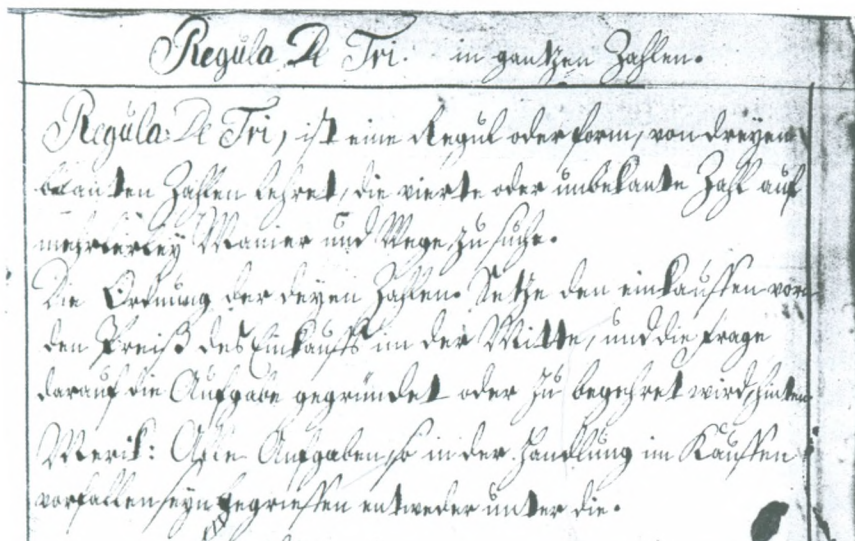 Regula De Tri. in gantzen Zahlen.
Regula: De Tri, ist eine Regul oder form, von dreyen
bekanten Zahlen lehret, die vierte oder unbekante Zahl auf
mehrerley Manier und Wege, zu suche.
Die Ordnung der dreyen Zahlen. Setze den einkauffen vorn
den Preiß des Einkauffs in der Mitte, und die frage
darauf die Aufgabe gegründet oder zu begehret wird, hinten.
Merck: Alle Aufgaben, so in der Handlung im Kauffen
vorfallen seyn begrieffen entweder unter die.